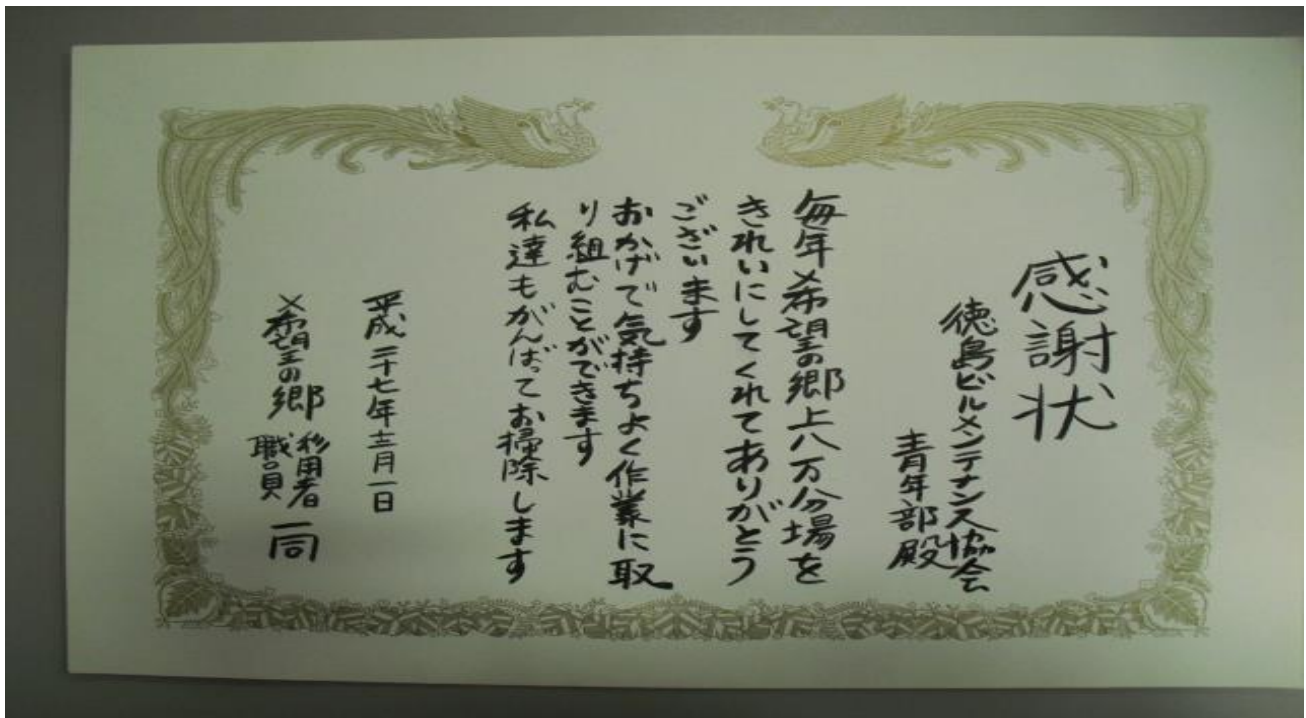 感謝状
徳島ビルメンテナンス協会
青年部殿
毎年希望の郷上八万分場を
きれいにしてくれてありがとう
ございます
おかげで気持ちよく作業に取
り組むことができます
私達もがんばってお掃除します
平成二十七年十二月一日
希望の郷 利用者 職員 一同